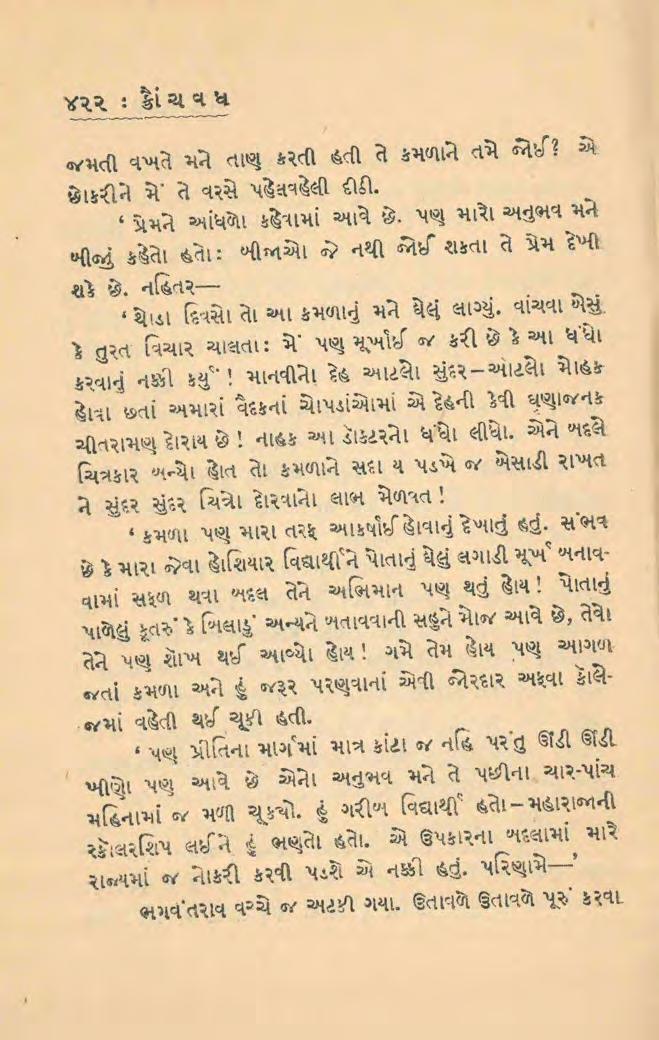 ૪૨૨ : ક્રૌંચવધ
જમતી વખતે મને તાણ કરતી હતી તે કમળાને તમે જોઈ? એ
છોકરીને મેં તે વરસે પહેલવહેલી દીઠી.
‘ પ્રેમને આંધળો કહેવામાં આવે છે. પણ મારો અનુભવ મને
બીજું કહેતો હતોઃ બીજાઓ જે નથી જોઈ શકતા તે પ્રેમ દેખી
શકે છે. નહિતર—
‘ થોડા દિવસો તો આ કમળાનું મને ઘેલું લાગ્યું. વાંચવા બેસું
કે તુરત વિચાર ચાલતાઃ મેં પણ મૂર્ખાઈ જ કરી છે કે આ ધંધો
કરવાનું નક્કી કર્યું ! માનવીનો દેહ આટલો સુંદર – આટલો મોહક
હોવા છતાં અમારાં વૈદકનાં ચોપડાંઓમાં એ દેહની કેવી ઘૃણાજનક
ચીતરામણ દોરાય છે ! નાહક આ ડૉક્ટરનો ધંધો લીધો. એને બદલે
ચિત્રકાર બન્યો હોત તો કમળાને સદા ય પડખે જ બેસાડી રાખત
ને સુંદર સુંદર ચિત્રો દોરવાનો લાભ મેળવત !
‘ કમળા પણ મારા તરફ આકર્ષાઈ હોવાનું દેખાતું હતું. સંભવ
છે કે મારા જેવા હોશિયાર વિદ્યાર્થીને પોતાનું ઘેલું લગાડી મૂર્ખ બનાવ-
વામાં સફળ થવા બદલ તેને અભિમાન પણ થતું હોય ! પોતાનું
પાળેલું કૂતરું કે બિલાડું અન્યને બતાવવાની સહુને મોજ આવે છે, તેવો
તેને પણ શોખ થઈ આવ્યો હોય ! ગમે તેમ હોય પણ આગળ
જતાં કમળા અને હું જરૂર પરણવાનાં એવી જોરદાર અફવા કૉલે-
જમાં વહેતી થઈ ચૂકી હતી.
‘ પણ પ્રીતિના માર્ગમાં માત્ર કાંટા જ નહિ પરંતુ ઊંડી ઊંડી
ખીણો પણ આવે છે એનો અનુભવ મને તે પછીના ચાર-પાંચ
મહિનામાં જ મળી ચૂક્યો. હું ગરીબ વિદ્યાર્થી હતો – મહારાજાની
સ્કૉલરશિપ લઈને હું ભણતો હતો. એ ઉપકારના બદલામાં મારે
રાજ્યમાં જ નોકરી કરવી પડશે એ નક્કી હતું. પરિણામે—’
ભગવંતરાવ વચ્ચે જ અટકી ગયા. ઉતાવળે ઉતાવળે પૂરું કરવા